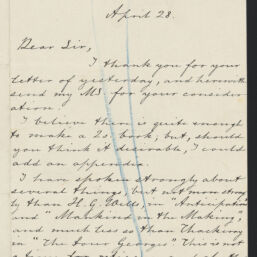 April 28.
Dear Sir,
I thank you for your
letter of yesterday, and herewith
send my MS. for your consider
ation.
I believe there is quite enough
to make a 2s. book, but, should
you think it desirable, I could
add an appendix.
I have spoken strongly about
several things, but not more strong
ly than H. G. Wells, in "Anticipations"
and "Mankind in the Making",
and much less so than Thackeray
in "The Four Georges". This is not